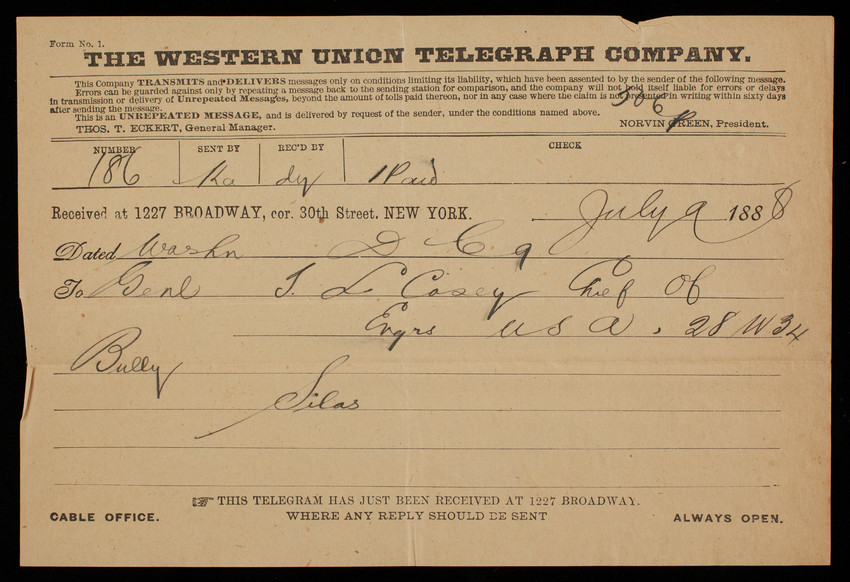 Form No. 1.
THE WESTERN UNION TELEGRAPH COMPANY.
This Company TRANSMITS and DELIVERS messages only on conditions limiting its liability, which have been assented to by the sender of the following message.
Errors can be guarded against only by repeating a message back to the sending station for comparison, and the company will not hold itself liable for errors or delays
in transmission or delivery of Unrepeated Messages, beyond the amount of tolls paid thereon, nor in any case where the claim is not presented in writing within sixty days
after sending the message.
This is an UNREPEATED MESSAGE, and is delivered by request of the sender, under the conditions named above.
506 P
THOS. T. ECKERT, General Manager. NORVIN GREEN, President.
NUMBER SENT BY REC'D BY CHECK
186 Ka dy 1 Paid
Received at 1227 BROADWAY, cor. 30th Street, NEW YORK. July 9 1888
Dated Washn D C 9
To Genl T. L Casey Chief Of
Engrs U S A. 28 W 34
Bully
Silas
THIS TELEGRAM HAS JUST BEEN RECEIVED AT 1227 BROADWAY.
CABLE OFFICE. WHERE ANY REPLY SHOULD BE SENT ALWAYS OPEN.